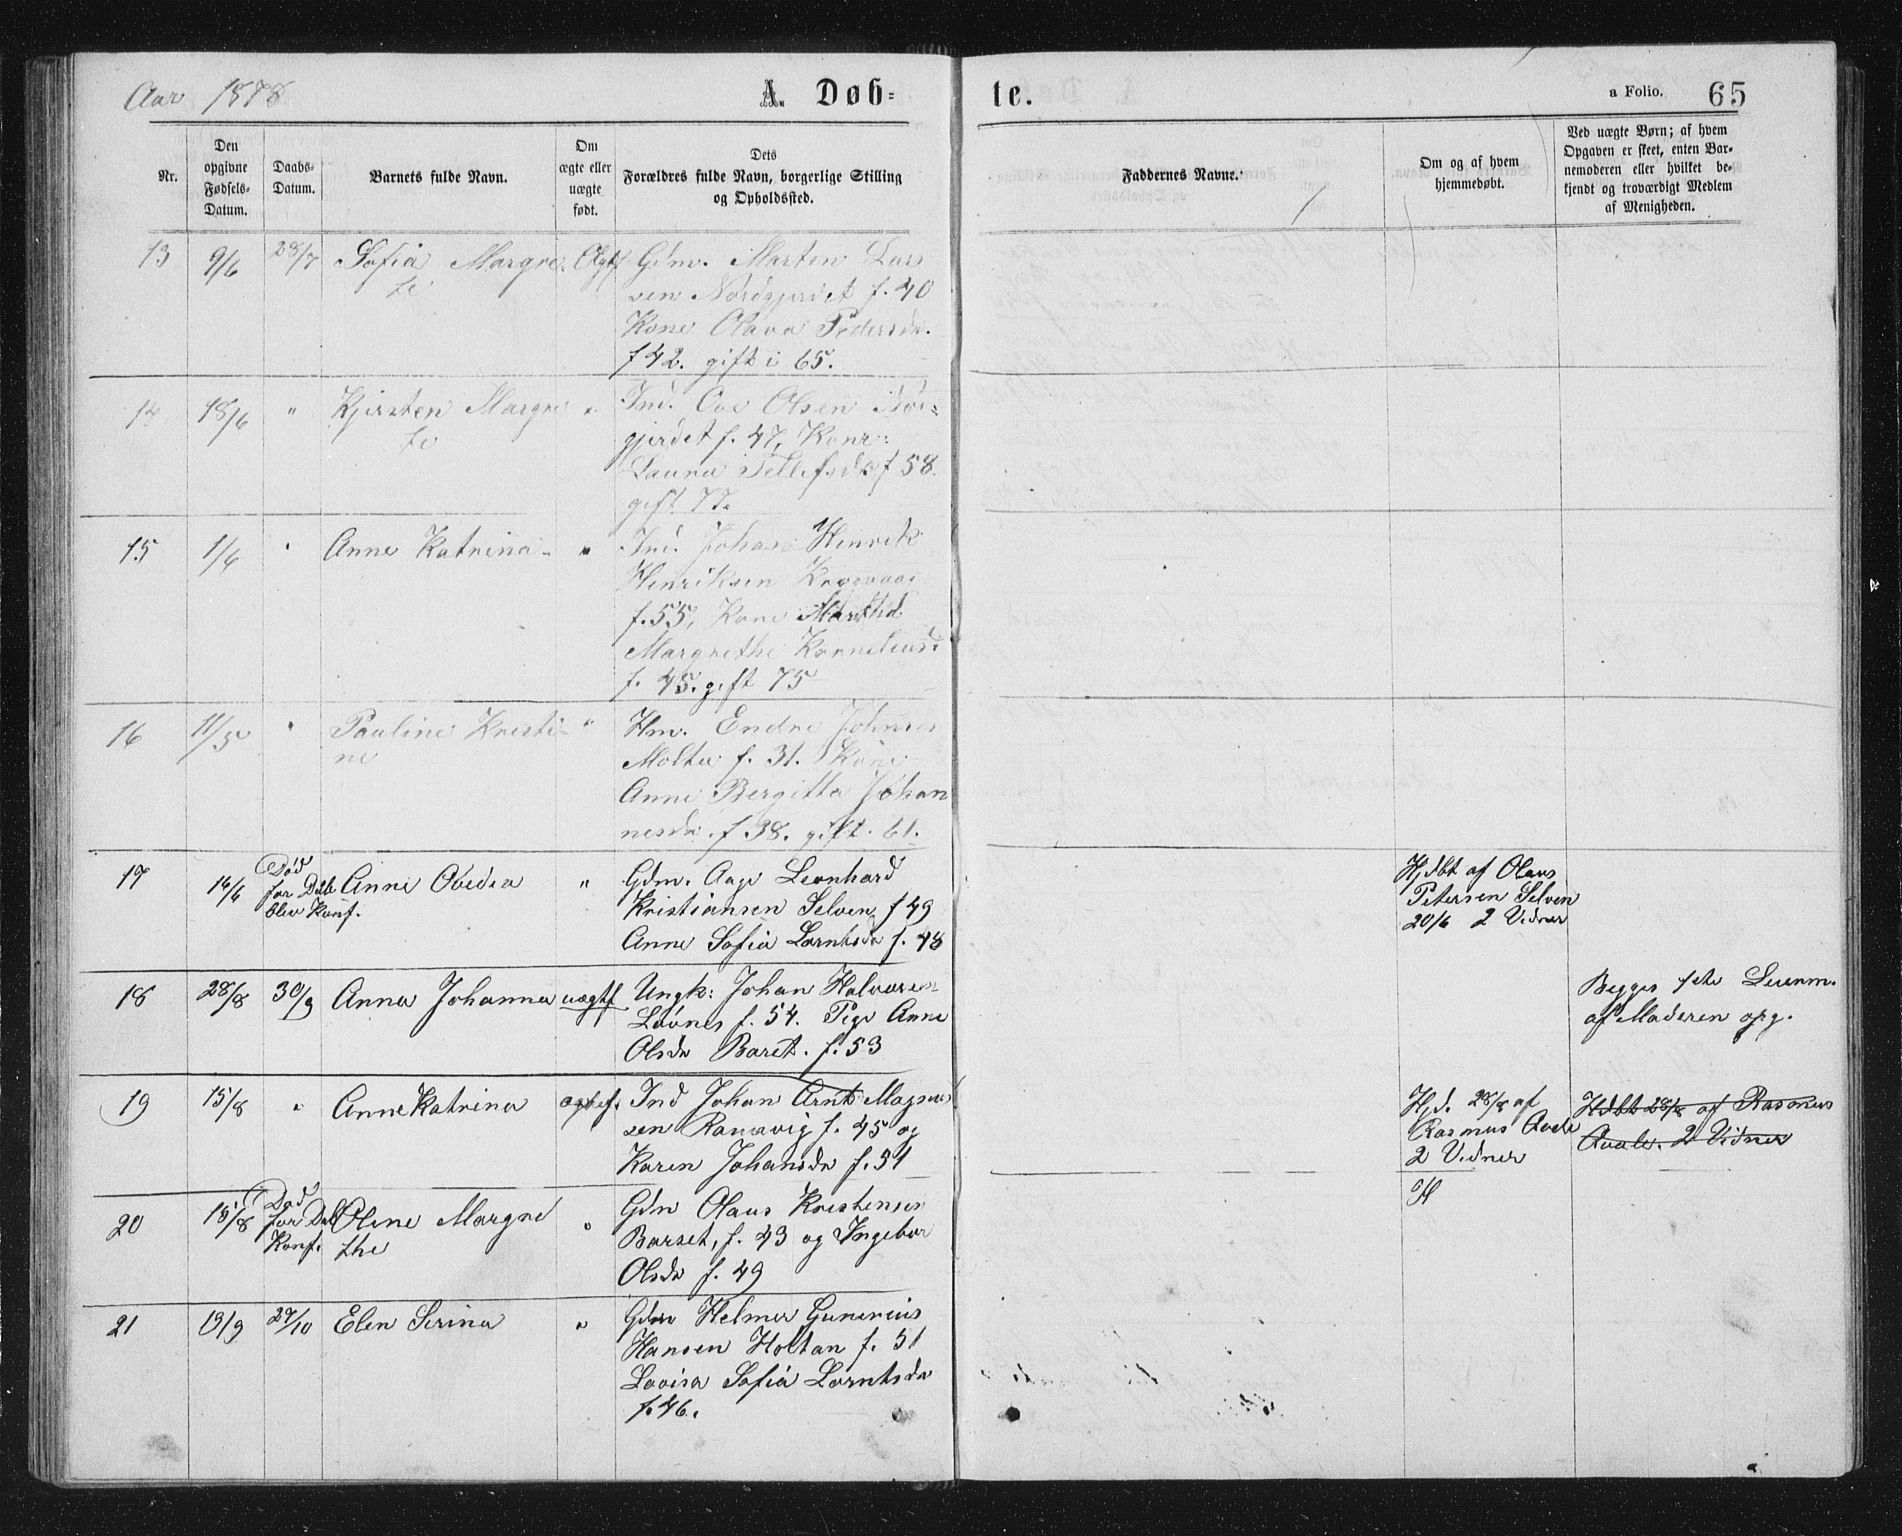 Aar 1878
A. Døb-
te.
a Folio. 65
Nr.
Den opgivne Fødsels-Datum.
Daabs-Datum.
Barnets fulde Navn.
Om ægte eller uægte født.
Dets Forældres fulde Navn, borgerlige Stilling og Opholdssted.
Faddernes Navne.
Om og af hvem hjemmedøbt.
Ved uægte Børn; af hvem Opgaven er skeet, enten Barnemoderen eller hvilket bekjendt og troværdigt Medlem af Menigheden.
13 9/6 28/7 Sofia Margre- Ægtf Gdm. Morten Lars
te sen Nordgjerdet f. 40
Kone Olava Pedersdr.
f 42. gift i 65.
14 18/6 " Kjersten Margre " Ind. Ove Olsen Nor-
te gjerdet f. 47, Kone:
Laura Tellefsdr f 58.
gift 77.
15 1/6 " Anne Katrina " Ind. Johan Henrik
Henriksen
f. 55, Kone
Margrethe Korneliusd.
f. 45. gift 75
16 11/5 " Pauline Kristi- " Hm. Endre Johnsen
ne Molta f. 31. Kone
Anne Bergitta Johan
nesdr. f 38. gift. 61.
17 14/6 Død for Dåb blev Konf. Anne Obedea " Gdm. Aage Leonhard
Kristiansen Selven f 49
Anne Sofia Lorntsdr f. 48
Hjdbt af Olaus
Petersen Selven
20/6 2 Vidner
18 28/8 30/9 Anna Johanna uægtf Ungk: Johan Halvorsen
Lóvnes f. 54. Pige Anne
Olsdr Barset. f. 53
Begges 1ste Leierm.
af Moderen opg.
19 15/8 " Anne Katrina ægtef. Ind Johan Arnt Magnus
sen Ramsvig f. 45 og
Karen Johansdr f. 54
Hjd. 28/8 af
Rasmus Avele
2 Vidner
Hdbt 28/8 af Rasmus
Avale. 2 Vidner
20 15/8 Død for Dåb Konf. Oline Margre " Gdm Olaus Kristensen
the Barset, f. 43 og Ingebor
Olsdr f. 49
H
21 19/9 27/10 Elen Serina " Gdm Helmer Gunerius
Hansen Holtan f. 51
Lovisa Sofia Lorntsdr
f. 46.